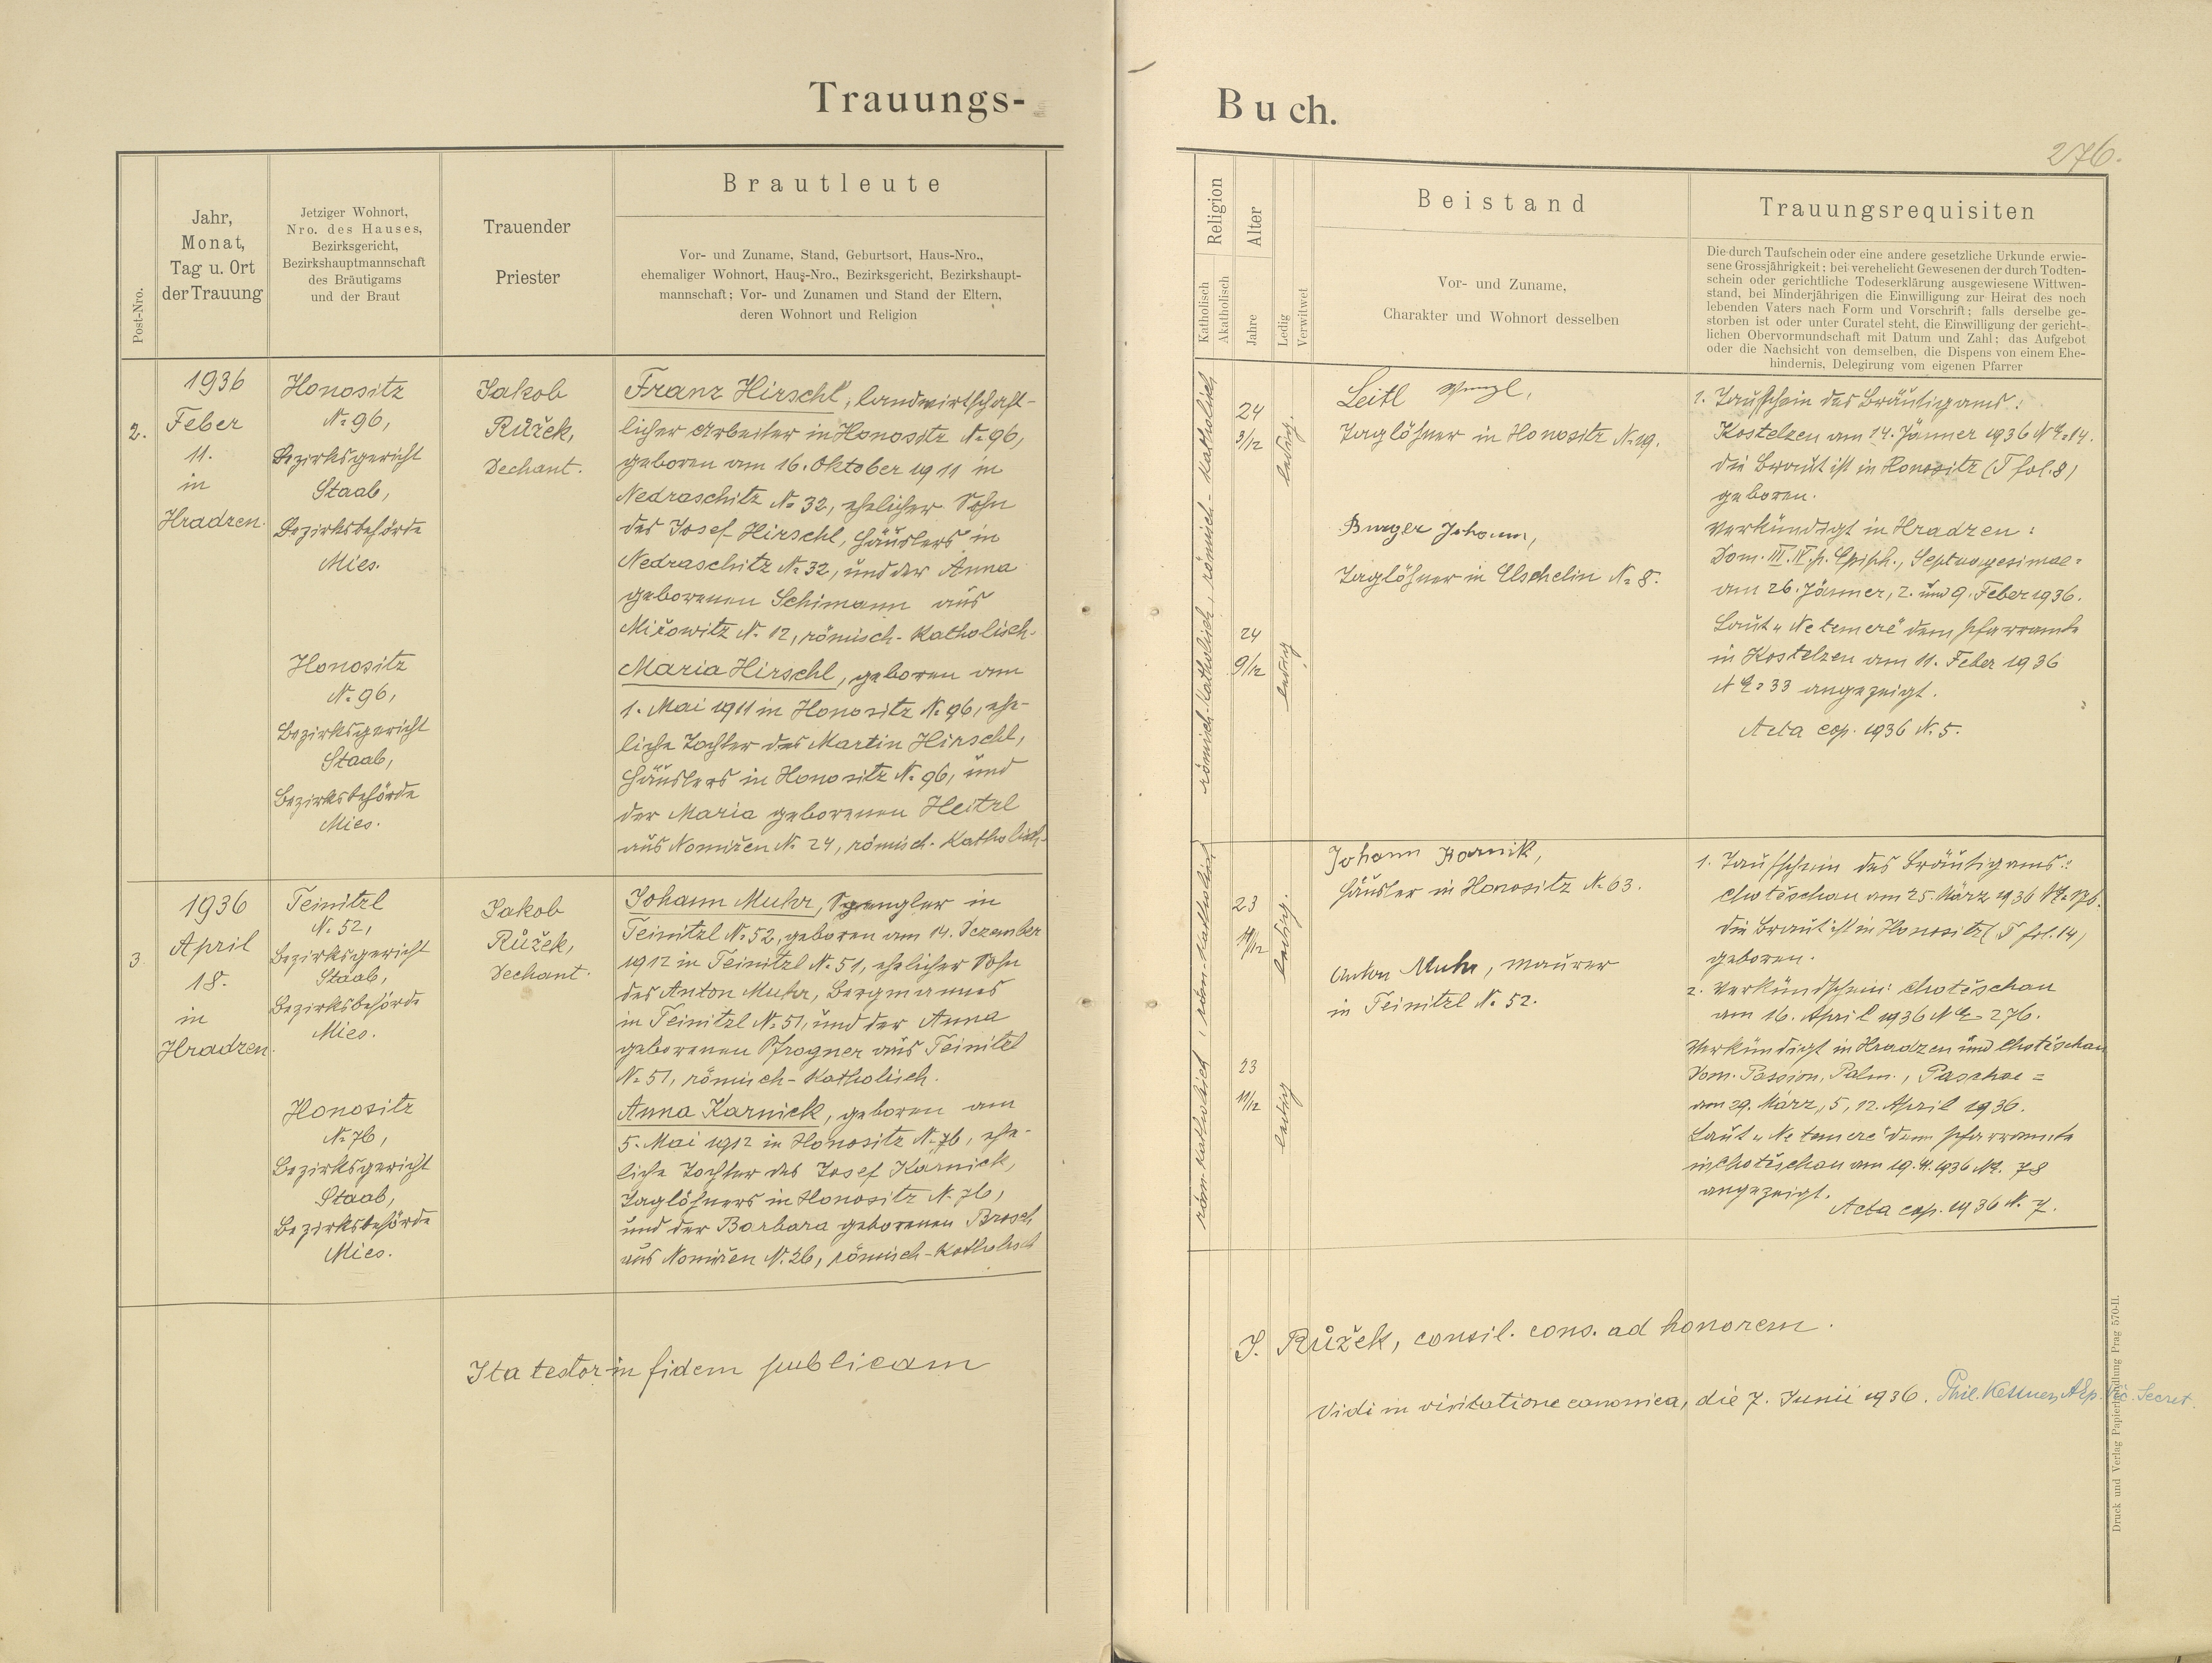 Trauungs-
Buch.
276.
Post-Nro.
Jahr,
Monat,
Tag u. Ort
der Trauung
Jetziger Wohnort,
Nro. des Hauses,
Bezirksgericht,
Bezirkshauptmannschaft
des Bräutigams
und der Braut
Trauender
Priester
Brautleute
Vor- und Zuname, Stand, Geburtsort, Haus-Nro.,
ehemaliger Wohnort, Haus-Nro., Bezirksgericht, Bezirkshaupt-
mannschaft; Vor- und Zunamen und Stand der Eltern,
deren Wohnort und Religion
Religion
Katholisch
Akatholisch
Alter
Jahre
Ledig
Verwitwet
Beistand
Vor- und Zuname,
Charakter und Wohnort desselben
Trauungsrequisiten
Die durch Taufschein oder eine andere gesetzliche Urkunde erwie-
sene Grossjährigkeit; bei verehelicht Gewesenen der durch Todten-
schein oder gerichtliche Todeserklärung ausgewiesene Wittwen-
stand, bei Minderjährigen die Einwilligung zur Heirat des noch
lebenden Vaters nach Form und Vorschrift; falls derselbe ge-
storben ist oder unter Curatel steht, die Einwilligung der gericht-
lichen Obervormundschaft mit Datum und Zahl; das Aufgebot
oder die Nachsicht von demselben, die Dispens von einem Ehe-
hindernis, Delegirung vom eigenen Pfarrer
2.
1936
Feber
11.
in
Hradzen.
Honositz
N: 96,
Bezirksgericht
Staab,
Bezirksbehörde
Mies.
Honositz
N: 96,
Bezirksgericht
Staab,
Bezirksbehörde
Mies.
Jakob
Růžek,
Dechant.
Franz Hirschl, landwirtschaft-
licher Arbeiter in Honositz N: 96,
geboren am 16. Oktober 1911 in
Nedraschitz N: 32, ehelicher Sohn
des Josef Hirschl, Häuslers in
Nedraschitz N: 32, und der Anna
geborenen Schimann aus
Mižowitz N: 12, römisch-katholisch.
Maria Hirschl, geboren am
1. Mai 1911 in Honositz N: 96, ehe-
liche Tochter des Martin Hirschl,
Häuslers in Honositz N: 96, und
der Maria geborenen Heitzl
aus Nomižen N: 24, römisch-katholisch.
römisch-katholisch, römisch-katholisch
24
3/12
ledig.
24
9/12
ledig
Leitl Wenzl,
Taglöhner in Honositz N: 49.
Burger Johann,
Taglöhner in Elschelin N: 8.
1. Taufschein des Bräutigams:
Kostelzen am 14. Jänner 1936 NE: 14.
die Braut ist in Honositz (T fol. 8)
geboren.
Verkündigt in Hradzen:
Dom. III. IV p. Epiph., Septuagesimae =
am 26. Jänner, 2. und 9. Feber 1936.
Laut „Ne temere" dem Pfarramte
in Kostelzen am 11. Feber 1936
NE: 33 angezeigt.
Acta cop. 1936 N: 5.
3.
1936
April
18.
in
Hradzen.
Teinitzl
N: 52,
Bezirksgericht
Staab,
Bezirksbehörde
Mies.
Honositz
N: 76,
Bezirksgericht
Staab,
Bezirksbehörde
Mies.
Jakob
Růžek,
Dechant.
Johann Muhr, Spengler in
Teinitzl N: 52, geboren am 14. Dezember
1912 in Teinitzl N: 51, ehelicher Sohn
des Anton Muhr, Bergmannes
in Teinitzl N: 51, und der Anna
geborenen Pfrogner aus Teinitzl
N: 51, römisch-katholisch.
Anna Karnick, geboren am
5. Mai 1912 in Honositz N: 76, ehe-
liche Tochter des Josef Karnick,
Taglöhners in Honositz N: 76,
und der Barbara geborenen Brosch
aus Nomižen N: 26, römisch-katholisch
röm-katholisch, röm-katholisch
23
ledig.
23
11/12
ledig
Johann Karnik,
Häusler in Honositz N: 63.
Anton Muhr, Maurer
in Teinitzl N: 52.
1. Taufschein des Bräutigams:
Chotěschau am 25. März 1936
die Braut ist in Honositz (T fol. 14)
geboren.
2. Verkündschein: Chotěschau
am 16. April 1936 NE 276.
Verkündigt in Hradzen und Chotěschau
Dom. Passion, Palm., Paschae =
am 29. März, 5, 12. April 1936.
Laut „Ne temere" dem Pfarramte
in Chotěschau am 19. 4. 1936 NE. 78
angezeigt.
Acta cop. 1936 N: 7.
Ita testor in fidem publicam
J. Růžek, consil. cons. ad honorem.
Vidi in visitatione canonica, die 7. Junii 1936. Phil. Secret.
Druck und Verlag Papierhandlung Prag 570-II.